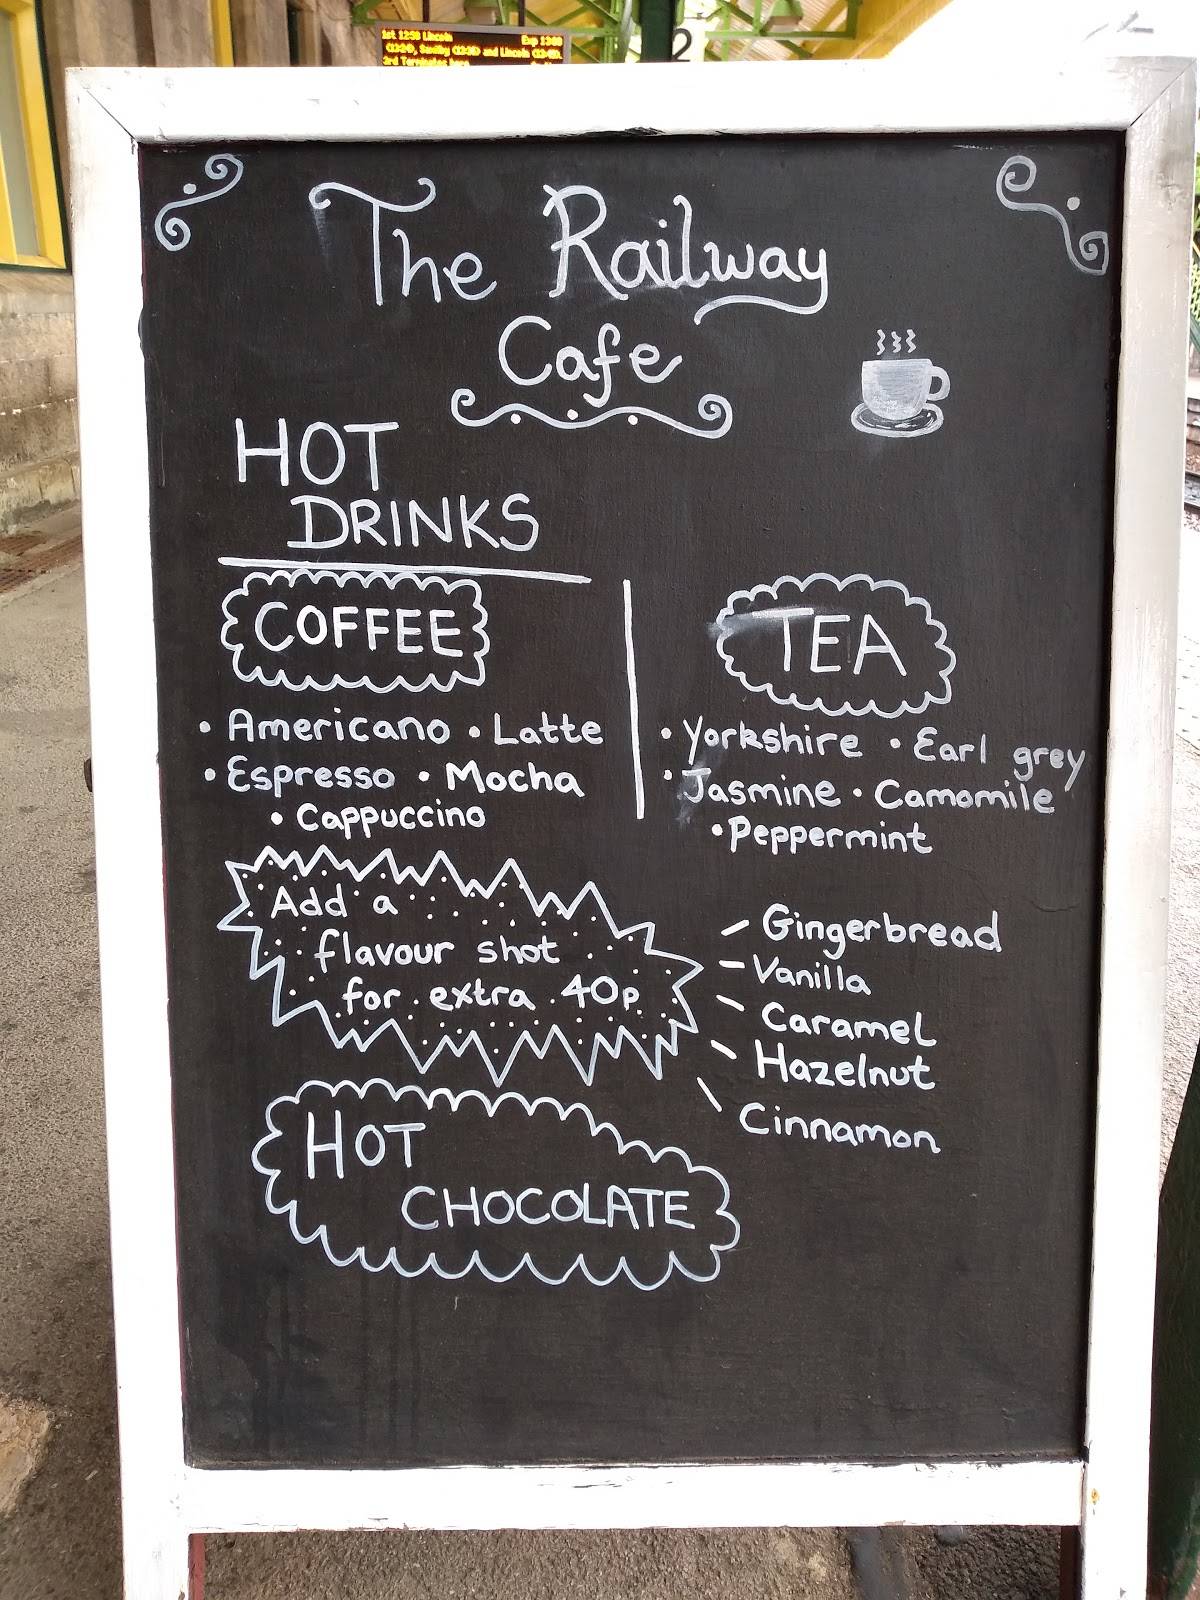 1st 12:58 Lincoln Exp 13:00
and Lincoln
3rd Terminates here
2
The Railway
Cafe
HOT
DRINKS
COFFEE
• Americano • Latte
• Espresso • Mocha
• Cappuccino
TEA
• Yorkshire • Earl grey
• Jasmine • Camomile
• Peppermint
Add a
flavour shot
for extra 40p
- Gingerbread
- Vanilla
- Caramel
- Hazelnut
- Cinnamon
HOT
CHOCOLATE